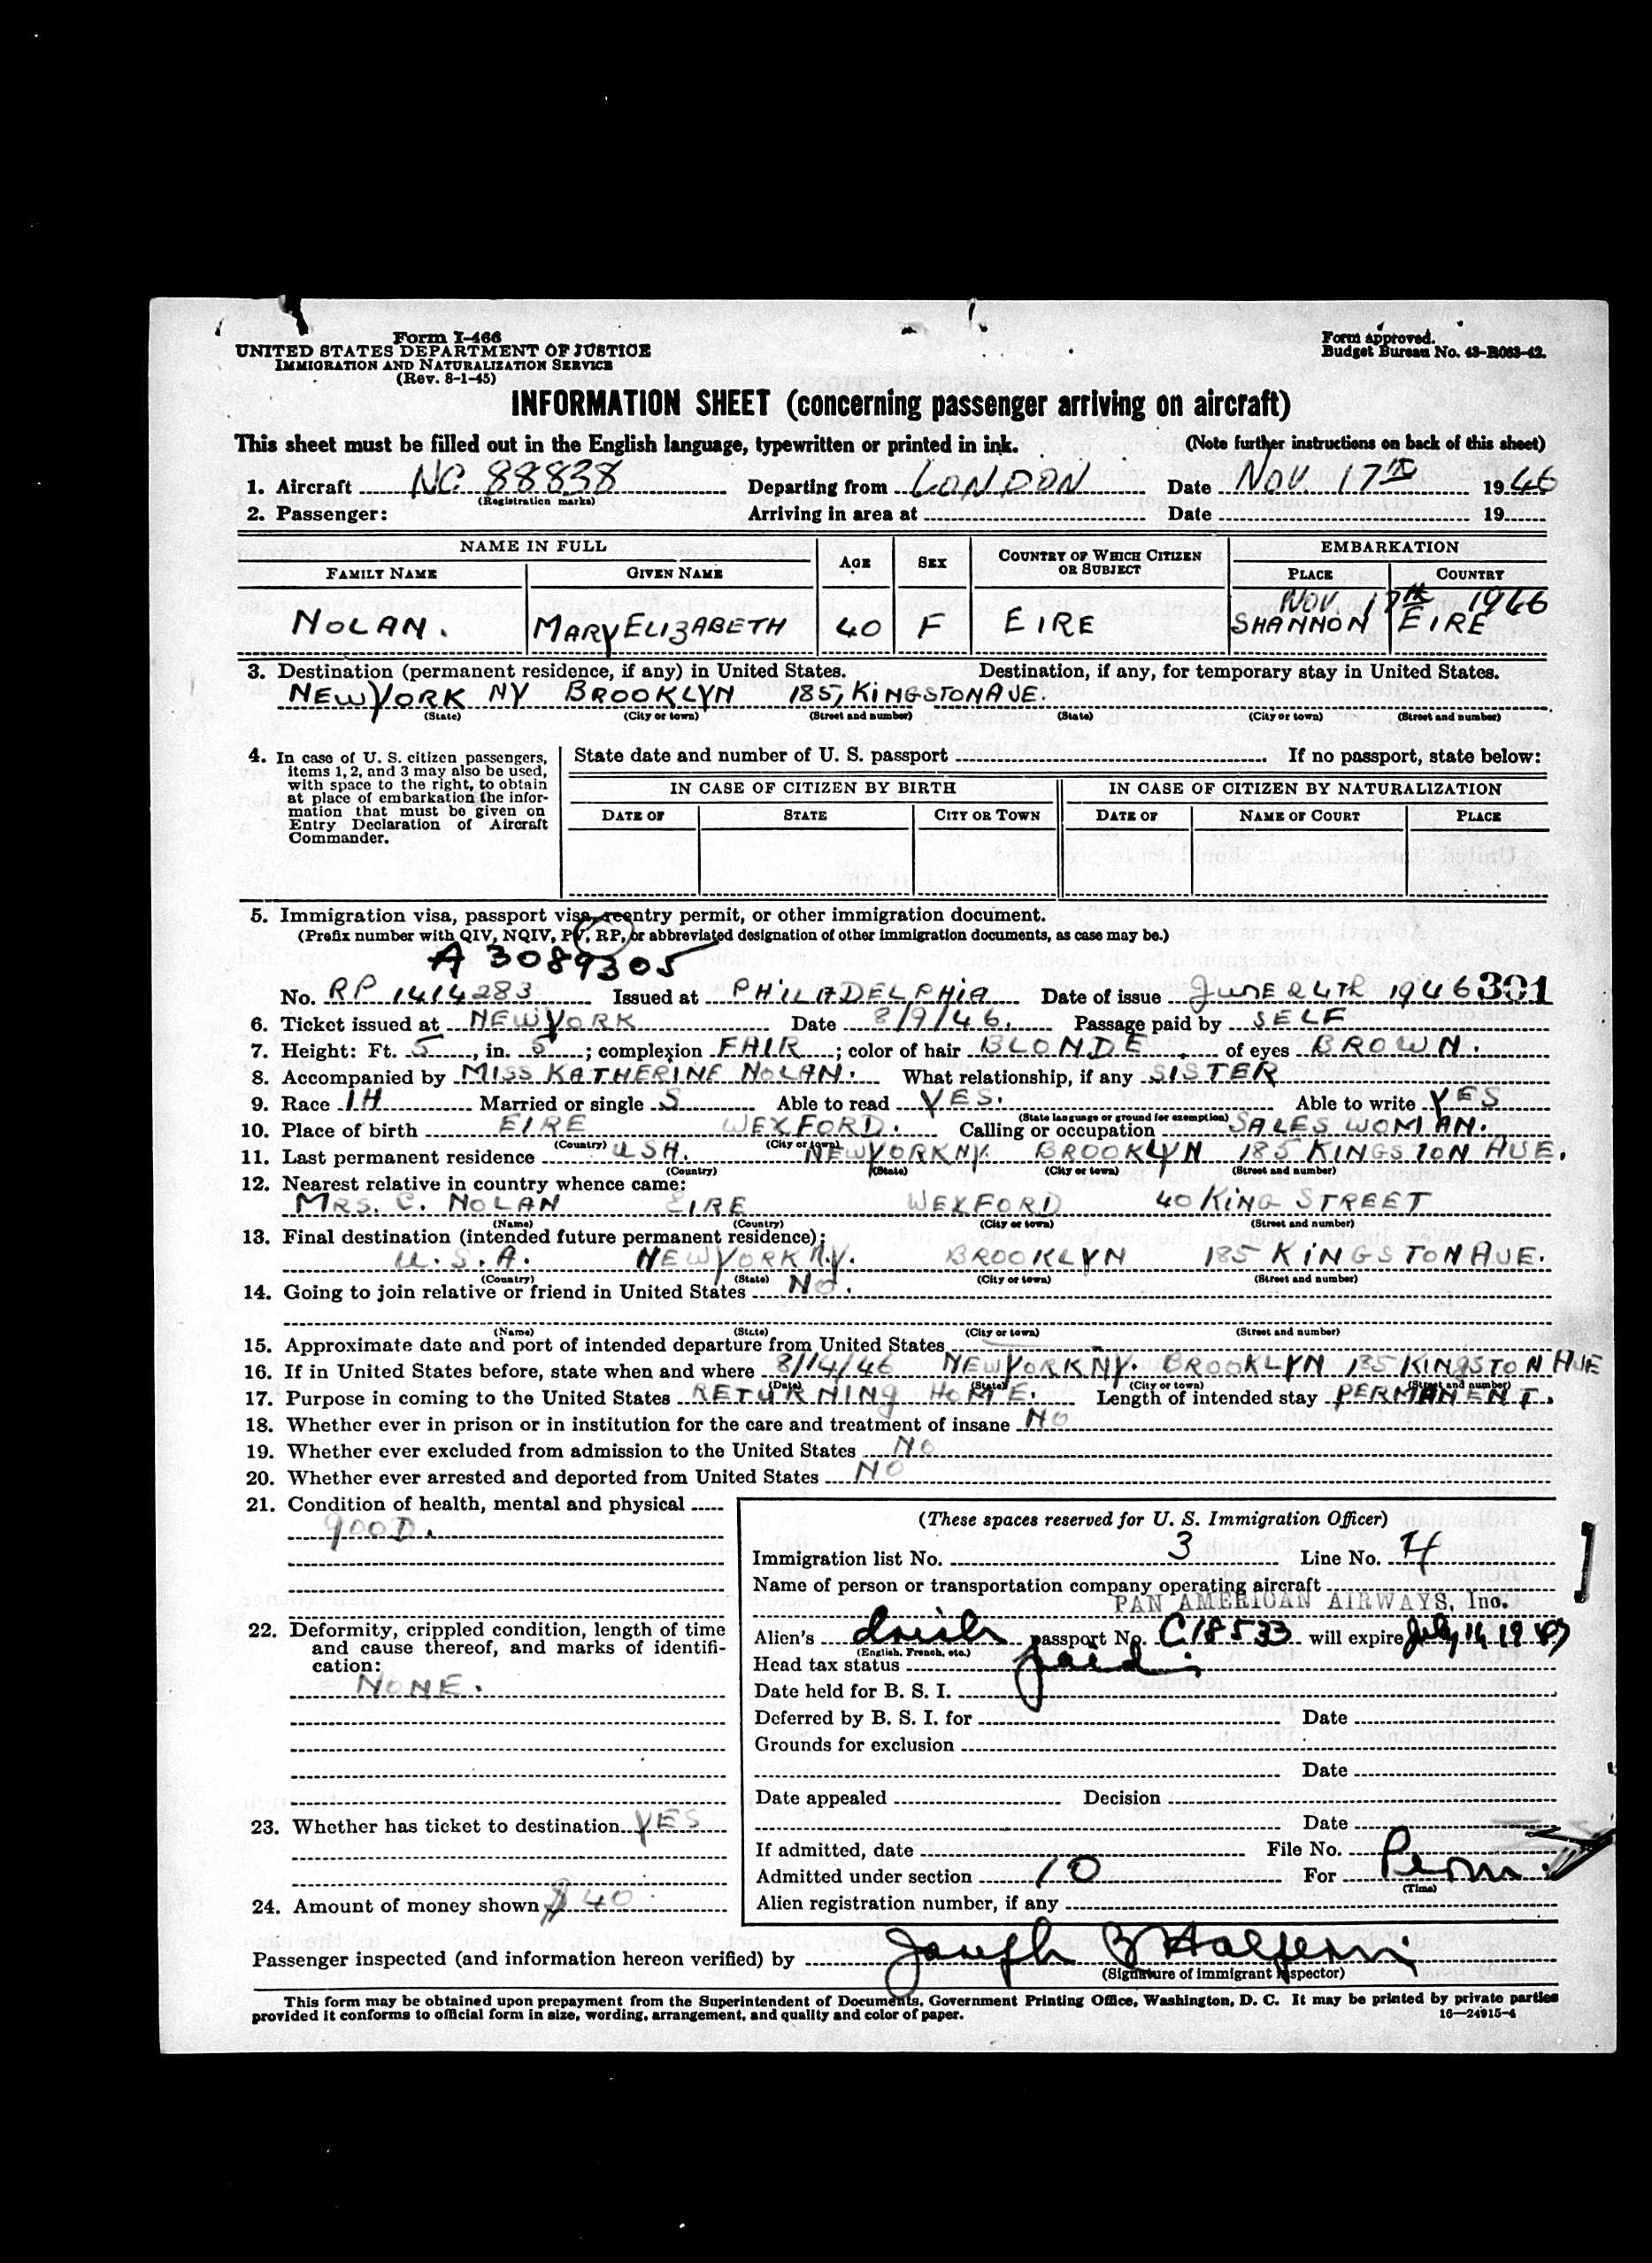 Form I-466
UNITED STATES DEPARTMENT OF JUSTICE
IMMIGRATION AND NATURALIZATION SERVICE
(Rev. 8-1-45)
Form approved.
Budget Bureau No. 43-R063-42.
INFORMATION SHEET (concerning passenger arriving on aircraft)
This sheet must be filled out in the English language, typewritten or printed in ink. (Note further instructions on back of this sheet)
1. Aircraft NC 88838 Departing from LONDON Date NOV 17TH 1946
(Registration marks)
2. Passenger: Arriving in area at Date 19
NAME IN FULL AGE SEX COUNTRY OF WHICH CITIZEN OR SUBJECT EMBARKATION
FAMILY NAME GIVEN NAME PLACE COUNTRY
NOV 17TH 1946
NOLAN. MARY ELIZABETH 40 F EIRE SHANNON EIRE
3. Destination (permanent residence, if any) in United States. Destination, if any, for temporary stay in United States.
NEW YORK NY BROOKLYN 185, KINGSTON AVE.
(State) (City or town) (Street and number) (State) (City or town) (Street and number)
4. In case of U. S. citizen passengers,
items 1, 2, and 3 may also be used,
with space to the right, to obtain
at place of embarkation the infor-
mation that must be given on
Entry Declaration of Aircraft
Commander.
State date and number of U. S. passport If no passport, state below:
IN CASE OF CITIZEN BY BIRTH IN CASE OF CITIZEN BY NATURALIZATION
DATE OF STATE CITY OR TOWN DATE OF NAME OF COURT PLACE
5. Immigration visa, passport visa, reentry permit, or other immigration document.
(Prefix number with QIV, NQIV, PV, RP, or abbreviated designation of other immigration documents, as case may be.)
A 3089305
No. RP 1414283 Issued at PHILADELPHIA Date of issue JUNE 24TH 1946 301
6. Ticket issued at NEW YORK Date 8/9/46. Passage paid by SELF
7. Height: Ft. 5, in. 5; complexion FAIR; color of hair BLONDE of eyes BROWN.
8. Accompanied by MISS KATHERINE NOLAN. What relationship, if any SISTER
9. Race IH Married or single S Able to read YES. Able to write YES
(State language or ground for exemption)
10. Place of birth EIRE WEXFORD. Calling or occupation SALES WOMAN.
(Country) (City or town)
11. Last permanent residence USA. NEW YORK NY. BROOKLYN 185 KINGSTON AUE.
(Country) (State) (City or town) (Street and number)
12. Nearest relative in country whence came:
MRS. C. NOLAN EIRE WEXFORD 40 KING STREET
(Name) (Country) (City or town) (Street and number)
13. Final destination (intended future permanent residence):
U.S.A. NEW YORK N.Y. BROOKLYN 185 KINGSTON AUE.
(Country) (State) (City or town) (Street and number)
14. Going to join relative or friend in United States NO.
(Name) (State) (City or town) (Street and number)
15. Approximate date and port of intended departure from United States
16. If in United States before, state when and where 8/14/46 NEW YORK NY. BROOKLYN 185 KINGSTON AUE
(Date) (State) (City or town) (Street and number)
17. Purpose in coming to the United States RETURNING HOME. Length of intended stay PERMANENT.
18. Whether ever in prison or in institution for the care and treatment of insane NO
19. Whether ever excluded from admission to the United States NO
20. Whether ever arrested and deported from United States NO
21. Condition of health, mental and physical
GOOD.
22. Deformity, crippled condition, length of time
and cause thereof, and marks of identifi-
cation:
NONE.
23. Whether has ticket to destination YES
24. Amount of money shown $40
(These spaces reserved for U. S. Immigration Officer)
Immigration list No. 3 Line No. 4
Name of person or transportation company operating aircraft
PAN AMERICAN AIRWAYS, Inc.
Alien's Irish passport No. C18533 will expire July 14 1947
(English, French, etc.)
Head tax status paid
Date held for B. S. I.
Deferred by B. S. I. for Date
Grounds for exclusion
Date
Date appealed Decision
Date
If admitted, date File No.
Admitted under section 10 For Perm.
(Time)
Alien registration number, if any
Passenger inspected (and information hereon verified) by Joseph B Halpern
(Signature of immigrant inspector)
This form may be obtained upon prepayment from the Superintendent of Documents, Government Printing Office, Washington, D. C. It may be printed by private parties
provided it conforms to official form in size, wording, arrangement, and quality and color of paper. 16—24915-4